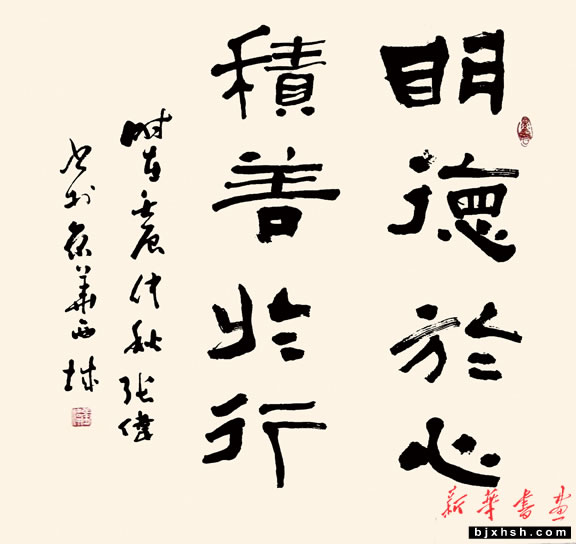 明德於心
積善於行
時在壬辰仲秋張偉
書於京華西城
新華書畫
bjxhsh.com